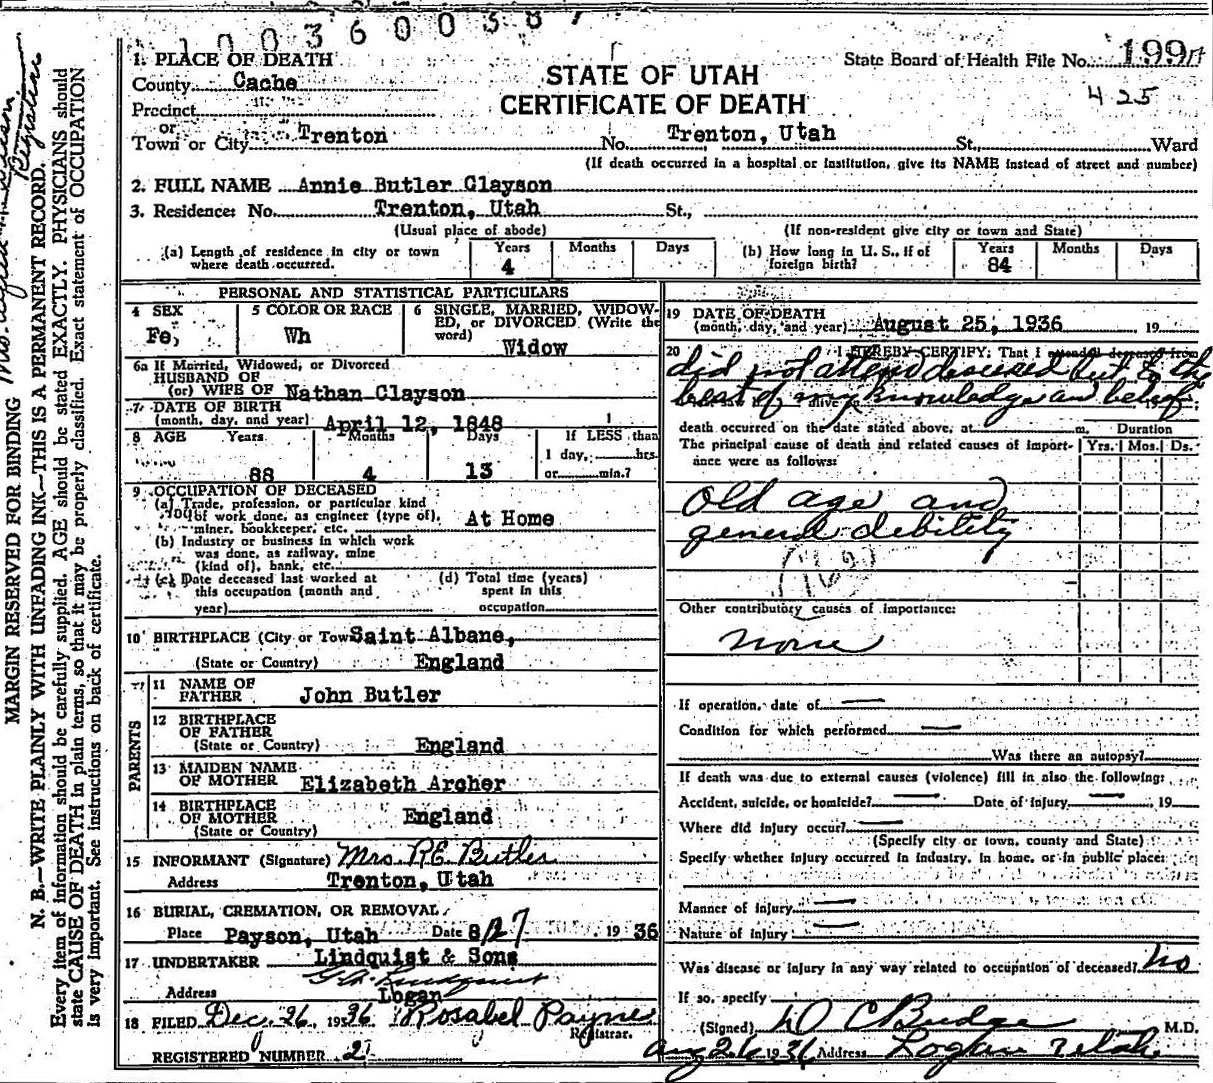 1003600387
1. PLACE OF DEATH
County Cache
Precinct
or
Town or City Trenton No. Trenton, Utah St., Ward
STATE OF UTAH
CERTIFICATE OF DEATH
State Board of Health File No. 199
425
(If death occurred in a hospital or institution, give its NAME instead of street and number)
2. FULL NAME Annie Butler Clayson
3. Residence: No. Trenton, Utah St.,
(Usual place of abode) (If non-resident give city or town and State)
(a) Length of residence in city or town where death occurred. Years 4 Months Days
(b) How long in U. S., if of foreign birth? Years 84 Months Days
PERSONAL AND STATISTICAL PARTICULARS
4 SEX Fe,
5 COLOR OR RACE Wh
6 SINGLE, MARRIED, WIDOWED, or DIVORCED (Write the word) Widow
6a If Married, Widowed, or Divorced
HUSBAND OF
(or) WIFE OF Nathan Clayson
7. DATE OF BIRTH
(month, day, and year) April 12, 1848
8 AGE Years 88 Months 4 Days 13
If LESS than
1 day, hrs.
or min.?
9 OCCUPATION OF DECEASED
(a) Trade, profession, or particular kind
of work done, as engineer (type of),
miner, bookkeeper, etc. At Home
(b) Industry or business in which work
was done, as railway, mine
(kind of), bank, etc.
(c) Date deceased last worked at
this occupation (month and
year)
(d) Total time (years)
spent in this
occupation
10 BIRTHPLACE (City or Tow Saint Albane,
(State or Country) England
PARENTS
11 NAME OF
FATHER John Butler
12 BIRTHPLACE
OF FATHER
(State or Country) England
13 MAIDEN NAME
OF MOTHER Elizabeth Archer
14 BIRTHPLACE
OF MOTHER
(State or Country) England
15 INFORMANT (Signature) Mrs. R E Butler
Address Trenton, Utah
16 BURIAL, CREMATION, OR REMOVAL
Place Payson, Utah Date 8/27 1936
17 UNDERTAKER Lindquist & Sons
Address Logan
18 FILED Dec. 26, 1936 Rosabel Payne
Registrar.
REGISTERED NUMBER 2
19 DATE OF DEATH
(month, day, and year) August 25, 1936, 19
20 I HEREBY CERTIFY: That I attended deceased from
did not attend deceased but to the
best of my knowledge and belief
death occurred on the date stated above, at m. Duration
The principal cause of death and related causes of importance were as follows: Yrs. Mos. Ds.
Old age and
general debility
(162)
Other contributory causes of importance:
none
If operation, date of —
Condition for which performed —
Was there an autopsy?
If death was due to external causes (violence) fill in also the following:
Accident, suicide, or homicide? — Date of injury — 19
Where did injury occur? —
(Specify city or town, county and State)
Specify whether injury occurred in industry, in home, or in public place:
Manner of injury —
Nature of injury —
Was disease or injury in any way related to occupation of deceased? No
If so, specify
(Signed) D C Budge M.D.
Aug 26 1936 Address Logan Utah
MARGIN RESERVED FOR BINDING
N. B.—WRITE PLAINLY WITH UNFADING INK—THIS IS A PERMANENT RECORD.
Every item of information should be carefully supplied. AGE should be stated EXACTLY. PHYSICIANS should
state CAUSE OF DEATH in plain terms, so that it may be properly classified. Exact statement of OCCUPATION
is very important. See instructions on back of certificate.
Registrar